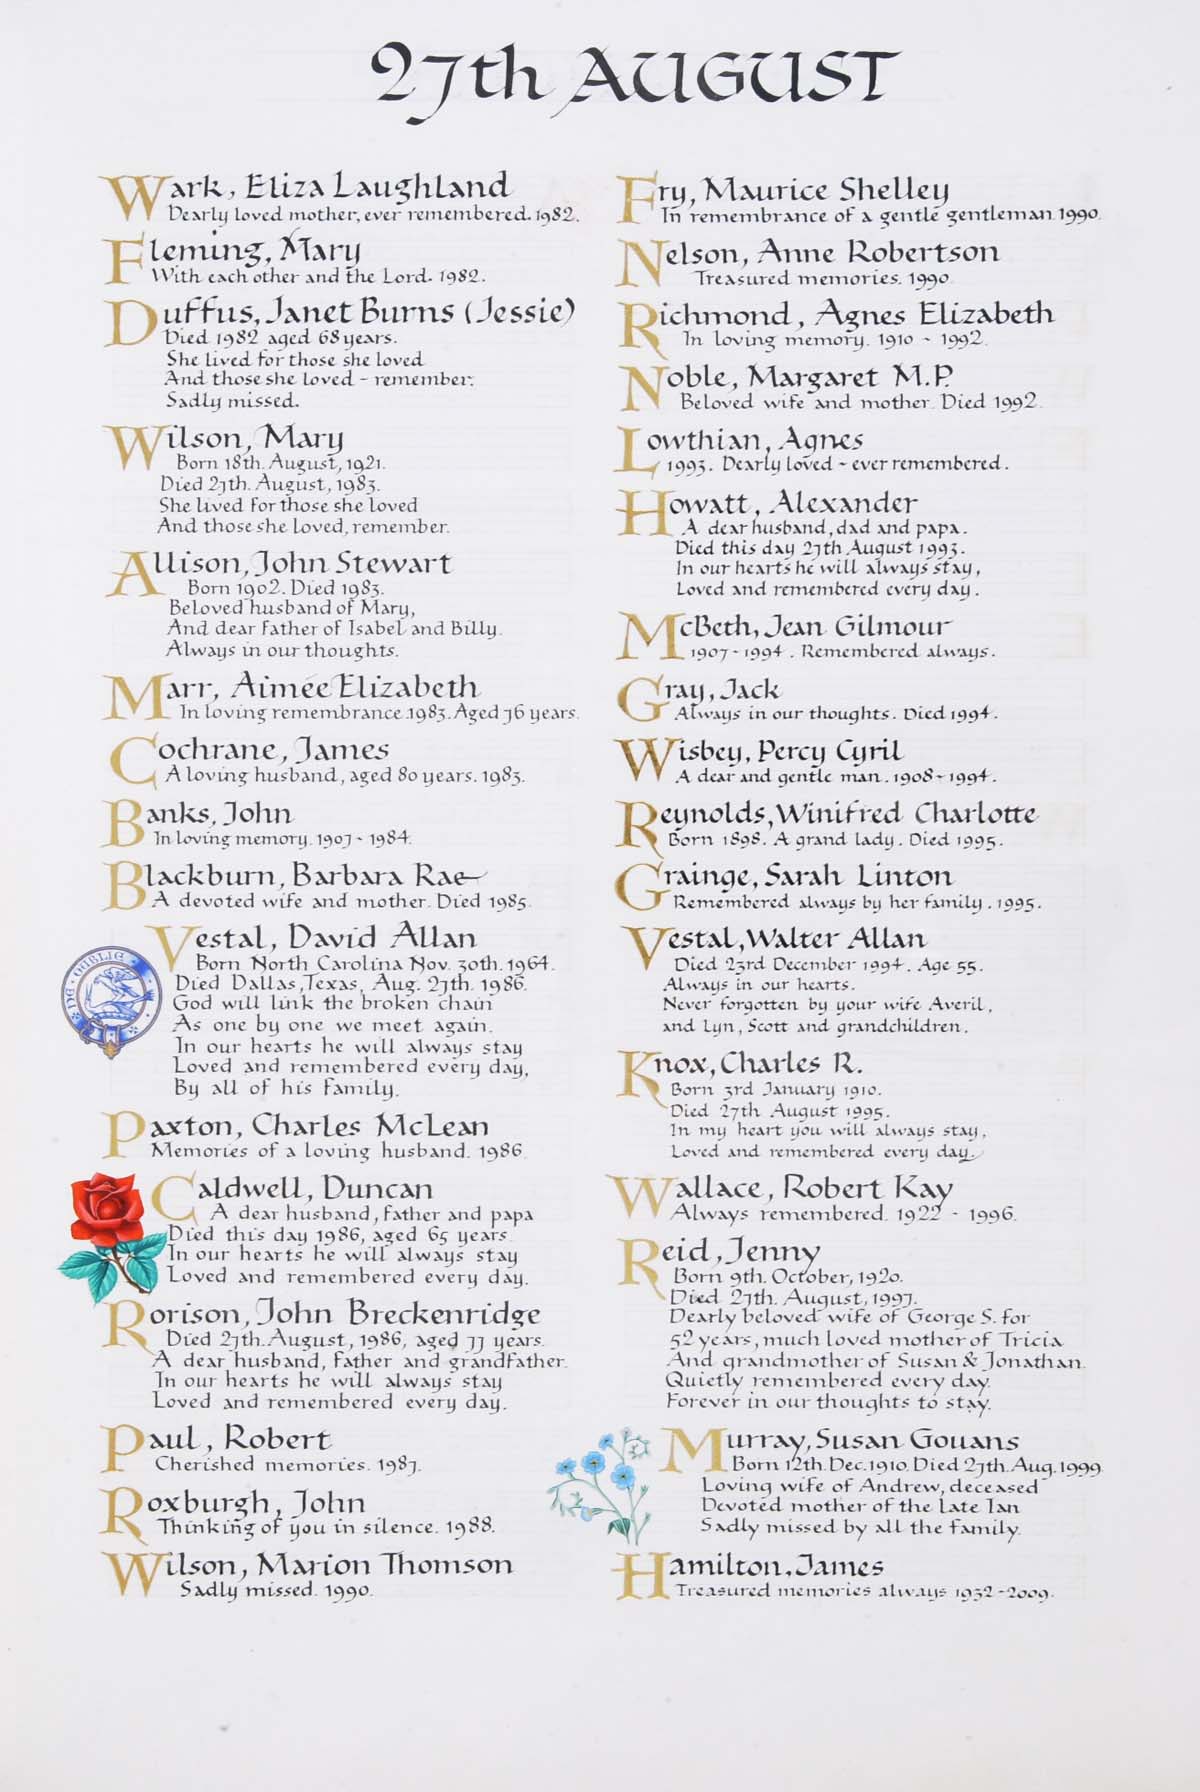 27th AUGUST
Wark, Eliza Laughland
Dearly loved mother, ever remembered. 1982.
Fleming, Mary
With each other and the Lord. 1982.
Duffus, Janet Burns (Jessie)
Died 1982 aged 68 years.
She lived for those she loved
And those she loved - remember.
Sadly missed.
Wilson, Mary
Born 18th. August, 1921.
Died 27th. August, 1983.
She lived for those she loved
And those she loved, remember.
Allison, John Stewart
Born 1902. Died 1983.
Beloved husband of Mary,
And dear father of Isabel and Billy.
Always in our thoughts.
Marr, Aimée Elizabeth
In loving remembrance 1983. Aged 76 years.
Cochrane, James
A loving husband, aged 80 years. 1983.
Banks, John
In loving memory. 1907 - 1984.
Blackburn, Barbara Rae
A devoted wife and mother. Died 1985.
Vestal, David Allan
Born North Carolina Nov. 30th. 1964.
Died Dallas, Texas, Aug. 27th. 1986.
God will link the broken chain
As one by one we meet again.
In our hearts he will always stay
Loved and remembered every day,
By all of his family.
Paxton, Charles McLean
Memories of a loving husband. 1986.
Caldwell, Duncan
A dear husband, father and papa
Died this day 1986, aged 65 years.
In our hearts he will always stay
Loved and remembered every day.
Rorison, John Breckenridge
Died 27th. August, 1986, aged 77 years.
A dear husband, father and grandfather.
In our hearts he will always stay
Loved and remembered every day.
Paul, Robert
Cherished memories. 1987.
Roxburgh, John
Thinking of you in silence. 1988.
Wilson, Marion Thomson
Sadly missed. 1990.
Fry, Maurice Shelley
In remembrance of a gentle gentleman. 1990.
Nelson, Anne Robertson
Treasured memories. 1990.
Richmond, Agnes Elizabeth
In loving memory. 1910 - 1992.
Noble, Margaret M.P.
Beloved wife and mother. Died 1992.
Lowthian, Agnes
1993. Dearly loved - ever remembered.
Howatt, Alexander
A dear husband, dad and papa.
Died this day 27th August 1993.
In our hearts he will always stay,
Loved and remembered every day.
McBeth, Jean Gilmour
1907 - 1994. Remembered always.
Gray, Jack
Always in our thoughts. Died 1994.
Wisbey, Percy Cyril
A dear and gentle man. 1908 - 1994.
Reynolds, Winifred Charlotte
Born 1898. A grand lady. Died 1995.
Grainge, Sarah Linton
Remembered always by her family. 1995.
Vestal, Walter Allan
Died 23rd December 1994. Age 55.
Always in our hearts.
Never forgotten by your wife Averil,
and Lyn, Scott and grandchildren.
Knox, Charles R.
Born 3rd January 1910.
Died 27th August 1995.
In my heart you will always stay,
Loved and remembered every day.
Wallace, Robert Kay
Always remembered. 1922 - 1996.
Reid, Jenny
Born 9th. October, 1920.
Died 27th. August, 1997.
Dearly beloved wife of George S. for
52 years, much loved mother of Tricia
And grandmother of Susan & Jonathan.
Quietly remembered every day.
Forever in our thoughts to stay.
Murray, Susan Gouans
Born 12th. Dec. 1910. Died 27th. Aug. 1999.
Loving wife of Andrew, deceased
Devoted mother of the late Ian
Sadly missed by all the family.
Hamilton, James
Treasured memories always 1932 - 2009.